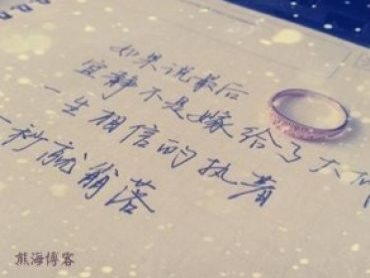 如果说最后
宜静不是嫁给了大
一生相信的执着
一秒就崩落
熊海博客